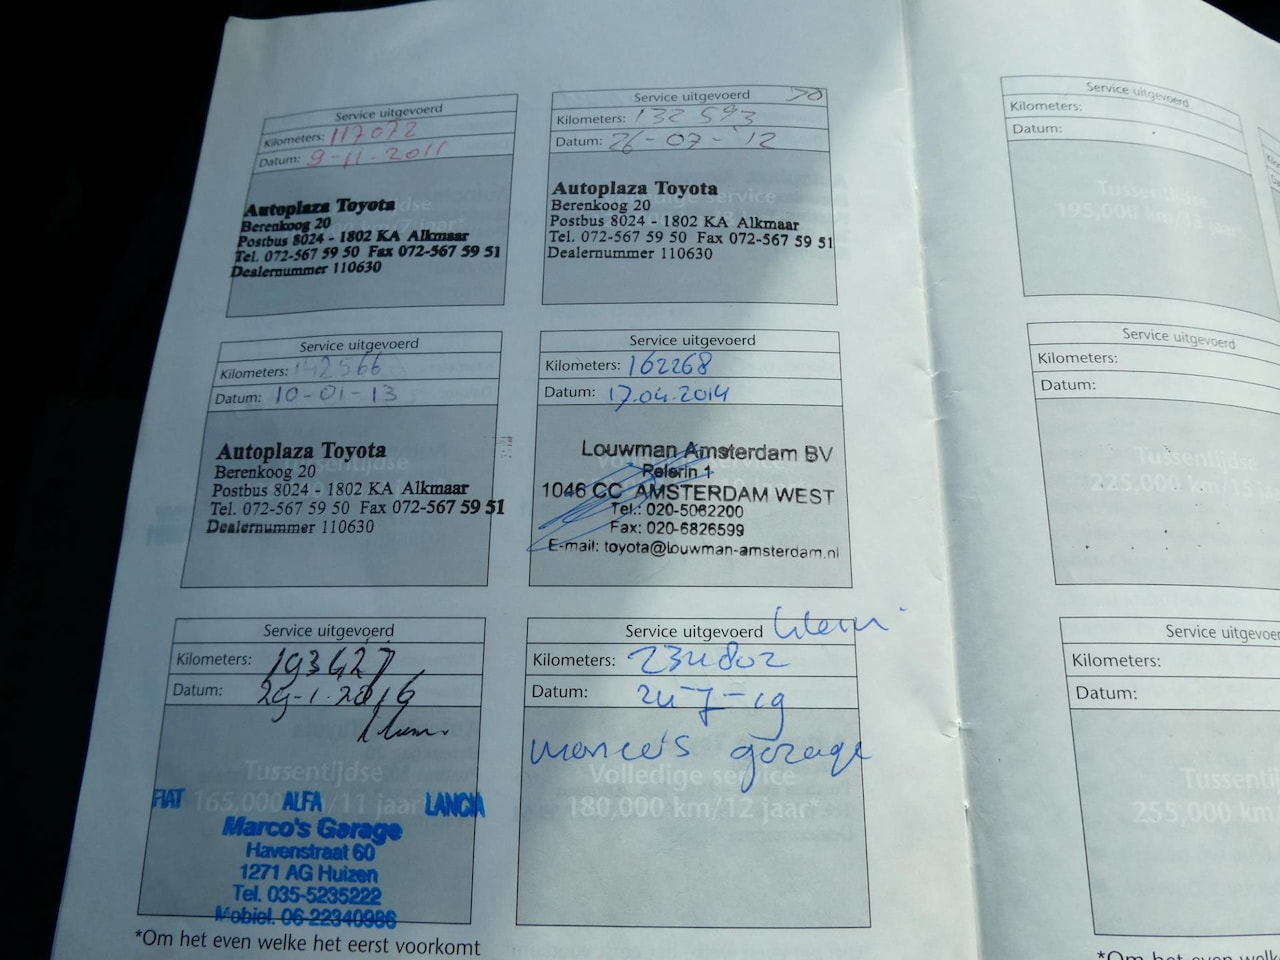 Service uitgevoerd
Kilometers: 117072
Datum: 9-11-2011
Autoplaza Toyota
Berenkoog 20
Postbus 8024 - 1802 KA Alkmaar
Tel. 072-567 59 50 Fax 072-567 59 51
Dealernummer 110630
Service uitgevoerd
Kilometers: 132593
Datum: 26-07-'12
Autoplaza Toyota
Berenkoog 20
Postbus 8024 - 1802 KA Alkmaar
Tel. 072-567 59 50 Fax 072-567 59 51
Dealernummer 110630
Service uitgevoerd
Kilometers: 142566
Datum: 10-01-13
Autoplaza Toyota
Berenkoog 20
Postbus 8024 - 1802 KA Alkmaar
Tel. 072-567 59 50 Fax 072-567 59 51
Dealernummer 110630
Service uitgevoerd
Kilometers: 162268
Datum: 17.04.2014
Louwman Amsterdam BV
Relerin 1
1046 CC AMSTERDAM WEST
Tel.: 020-5062200
Fax: 020-6826599
E-mail: toyota@louwman-amsterdam.nl
Service uitgevoerd
Kilometers: 193427
Datum: 29-1-2016
Tussentijdse
165,000 km/11 jaar
FIAT ALFA LANCIA
Marco's Garage
Havenstraat 60
1271 AG Huizen
Tel. 035-5235222
Mobiel. 06-22340986
Service uitgevoerd
Kilometers: 234802
Datum: 24-7-19
Marco's garage
Volledige service
180,000 km/12 jaar*
*Om het even welke het eerst voorkomt
Service uitgevoerd
Kilometers:
Datum:
Tussentijdse
195,000 km/13 jaar*
Service uitgevoerd
Kilometers:
Datum:
Tussentijdse
225,000 km/15 ja
Service uitgevoerd
Kilometers:
Datum:
Tussenti
255,000 km
*Om het even welk